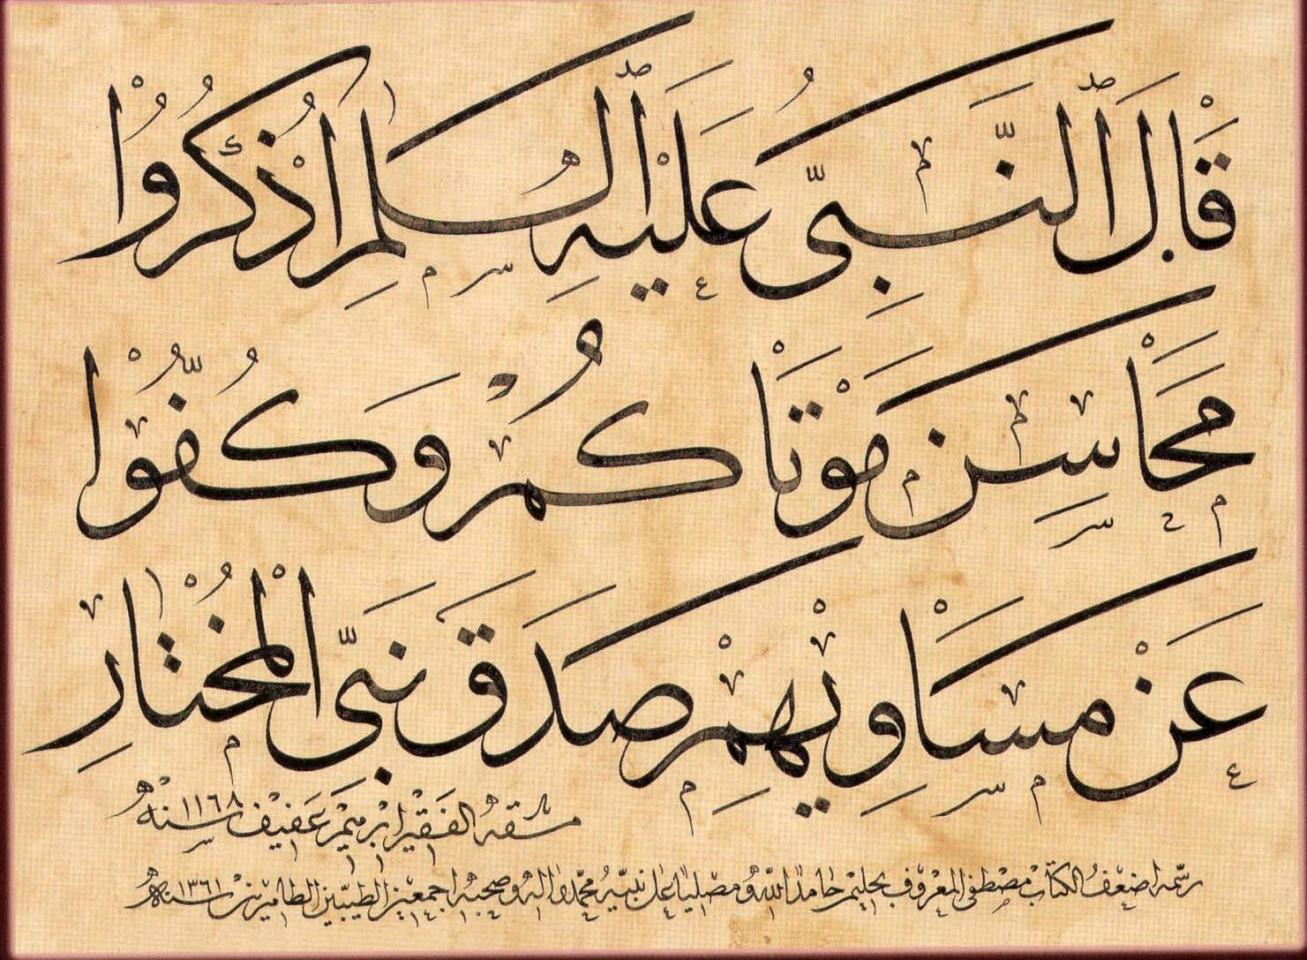 قَالَ ٱلنَّبِيُّ عَلَيْهِ ٱلسَّلٰمِ اُذْكُرُوا
مَحَاسِنَ مَوْتَاكُمْ وَكُفُّوا
عَنْ مَسَاوِيهِمْ صَدَقَ نَبِيُّ الْمُخْتَارِ
مشقه الفقير ابرهيم عفيف سنه ١١٦٨
رسمه اضعف الكتاب مصطفى المعروف بحليم حامدا لله ومصليا على نبيه محمد واله وصحبه اجمعين الطيبين الطاهرين سنه ١٣٦١